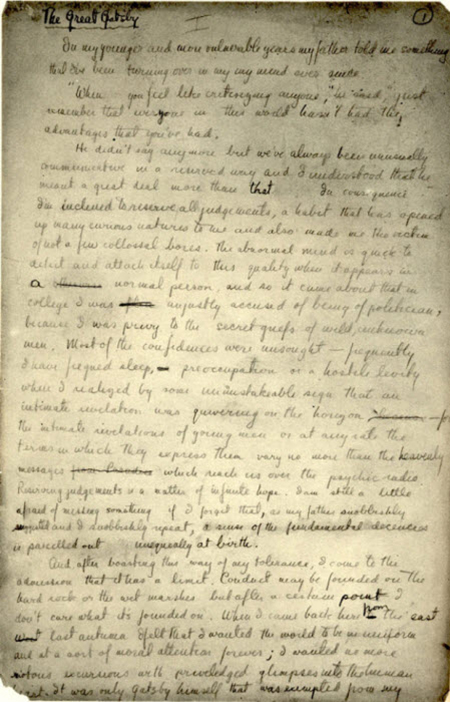 The Great Gatsby I 1
In my younger and more vulnerable years my father told me something
that I've been turning over in my my mind ever since.
"When you feel like criticizing anyone," he said, "just
remember that everyone in this world hasn't had the
advantages that you've had.
He didn't say anymore but we've always been unusually
communicative in a reserved way and I understood that he
meant a great deal more than that In consequence
I'm inclined to reserve all judgements, a habit that has opened
up many curious natures to me and also made me the victim
of not a few collossal bores. The abnormal mind is quick to
detect and attach itself to this quality when it appears in
a normal person, and so it came about that in
college I was unjustly accused of being of politician,
because I was privy to the secret griefs of wild, unknown
men. Most of the confidences were unsought — frequently
I have feigned sleep, preoccupation or a hostile levity
when I realized by some unmistakeable sign that an
intimate revelation was quivering on the horizon — for
the intimate revelations of young men or at any rate the
terms in which they express them vary no more than the heavenly
messages from which reach us over the psychic radio.
Reserving judgements is a matter of infinite hope. I am still a little
afraid of missing something if I forget that, as my father snobbishly
and I snobbishly repeat, a sense of the fundamental decencies
is parcelled out unequally at birth.
And after boasting this way of my tolerance, I come to the
admission that it has a limit. Conduct may be founded on the
hard rock or the wet marshes but after a certain point I
don't care what it's founded on. When I came back here from the east
last autumn I felt that I wanted the world to be in uniform
and at a sort of moral attention forever; I wanted no more
riotous excursions with priviledged glimpses into the human
heart. It was only Gatsby himself that was exempted from my